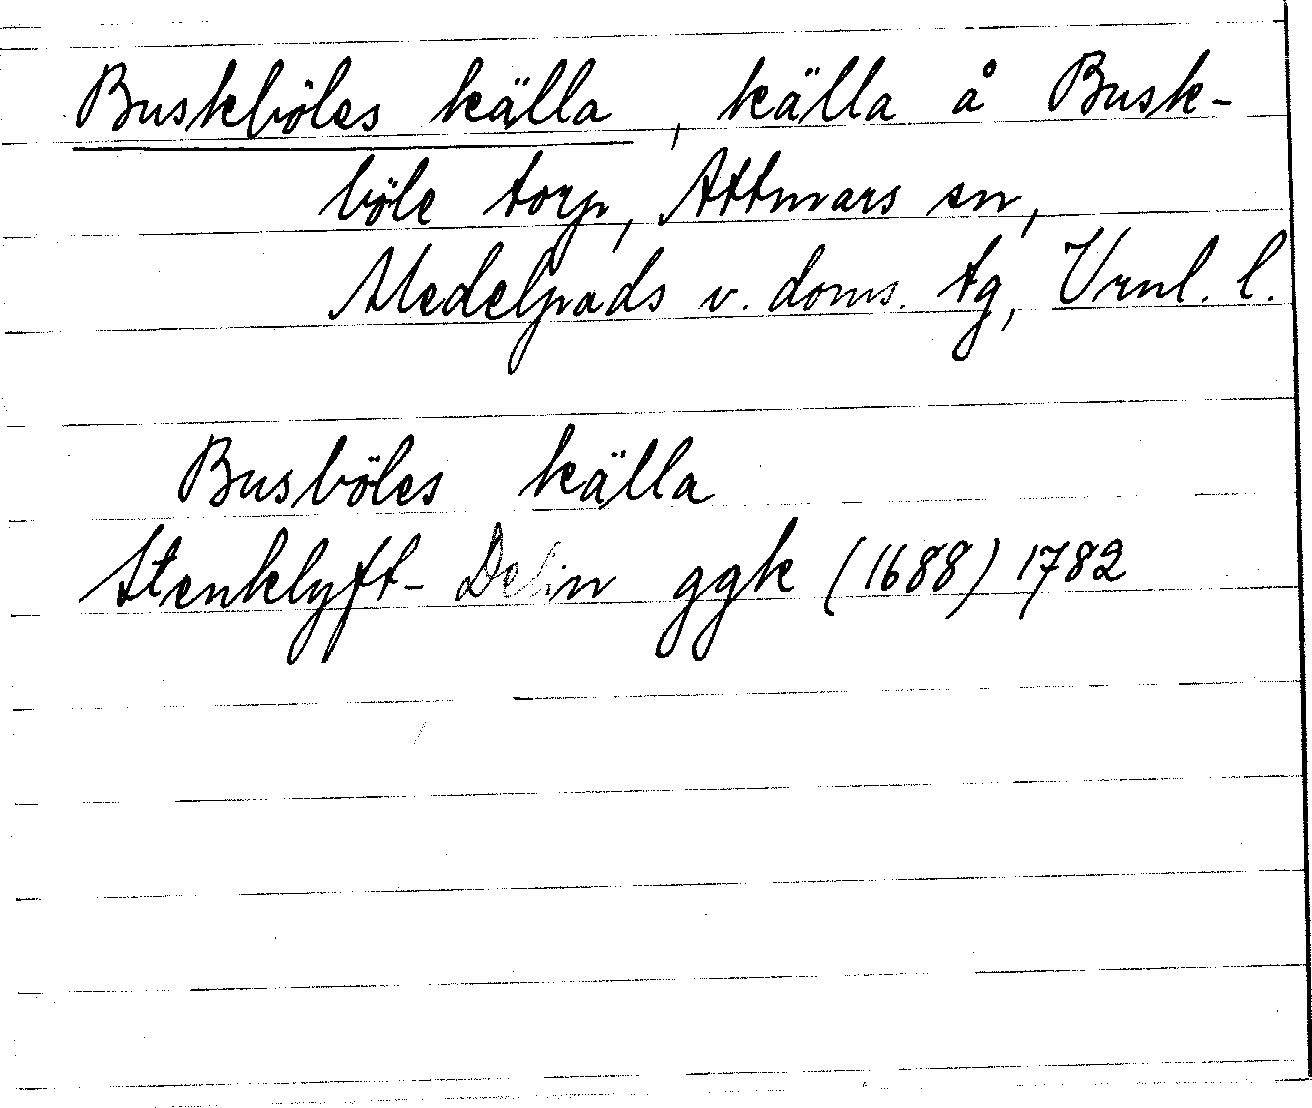 Buskböles källa, källa å Busk-
böle torp, Attmars sn,
Medelpads v. doms. tg, Vrnl. l.
Busböles källa
Stenklyft- Delin ggk (1688) 1782